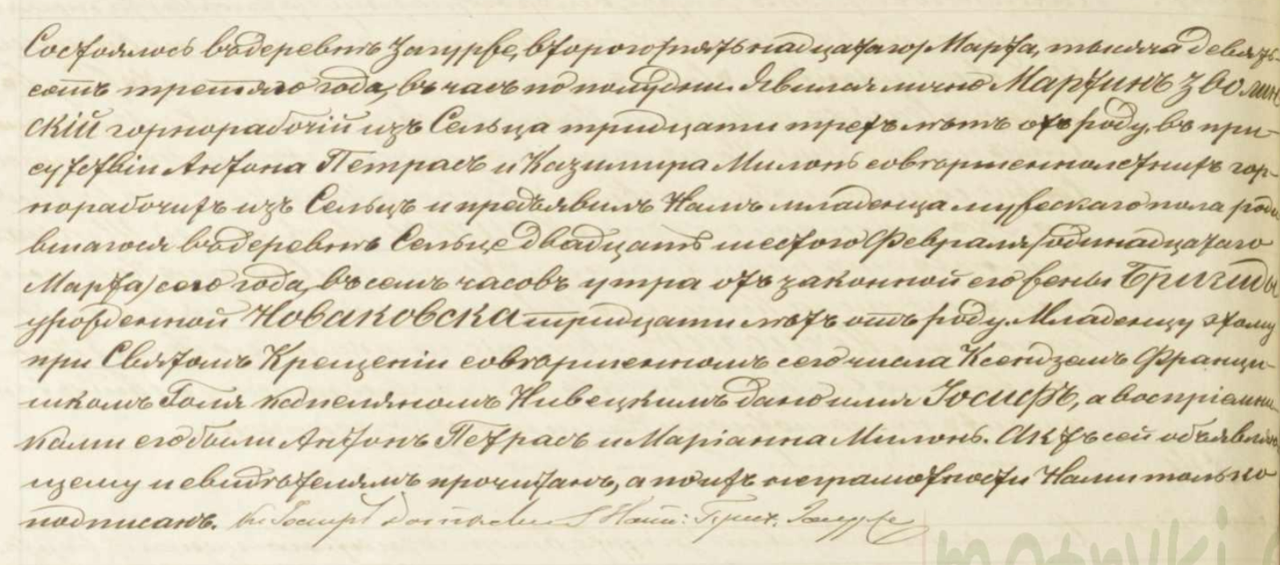 Состоялось въ деревнѣ Загурже, второго (пятьнадцатаго) Марта, тысяча девять-
сотъ третяго года, въ часъ по полудни. Явился лично Мартинъ Зволин
скій горнорабочій изъ Сельца тридцати трехъ лѣтъ отъ роду, въ при-
сутствіи Антона Петрась и Казимира Милонь совершеннолѣтнихъ гор-
норабочихъ изъ Сельцъ и предъявилъ Намъ младенца мужескаго пола роди
вшагося въ деревнѣ Сельце двадцать шестого Февраля (одинадцатаго
Марта) сего года, въ семь часовъ утра отъ законной его жены Бригиды
урожденной Новаковска тридцати лѣтъ отъ роду. Младенцу этому
при Святомъ Крещеніи совершенномъ сего числа Ксендзомъ Францис-
шкомъ Голя капеляномъ Нивецкимъ дано имя Іосифъ, а воспріемни
ками его были Антонъ Петрась и Маріанна Милонь. Актъ сей объявляю
щему и свидѣтелямъ прочитанъ, а по ихъ неграмотности Нами только
подписанъ. Кс. Іосифъ Наст: Прих. Загурже
matryki